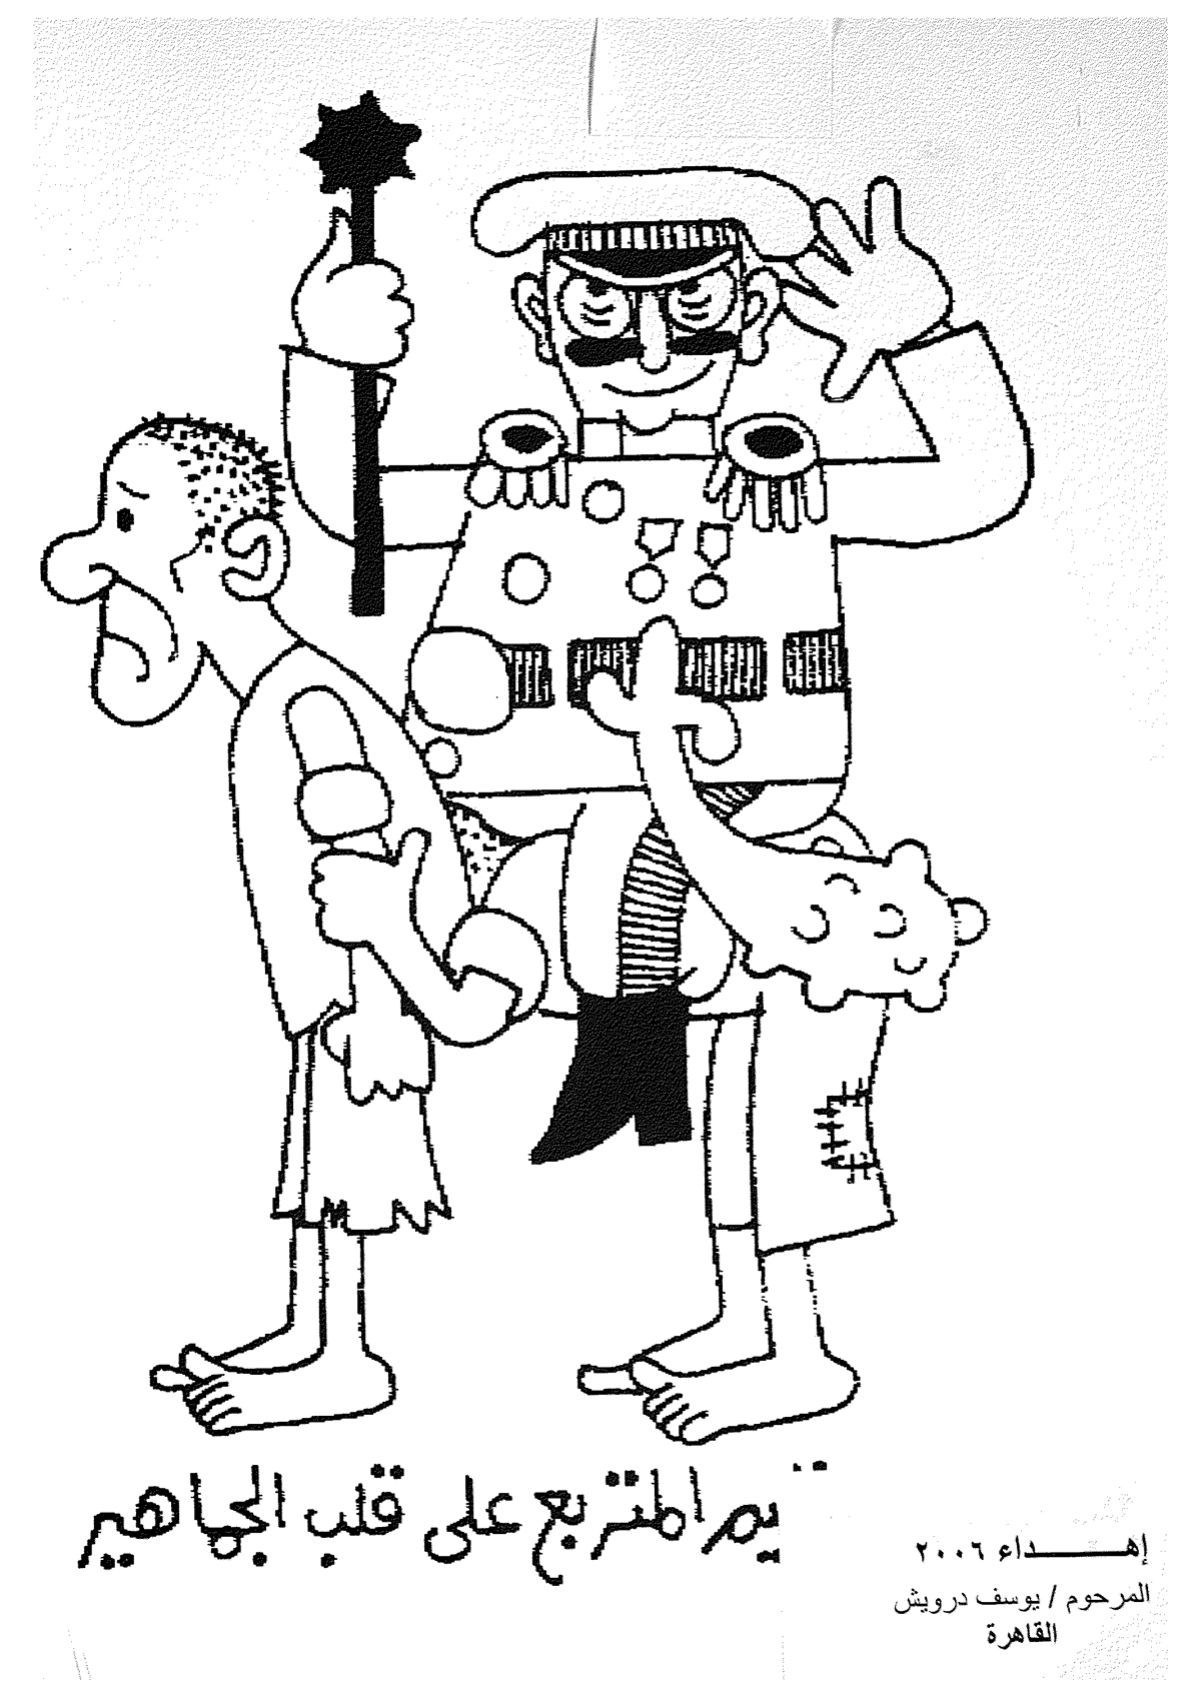 المتربع على قلب الجماهير
إهداء ٢٠٠٦
المرحوم / يوسف درويش
القاهرة